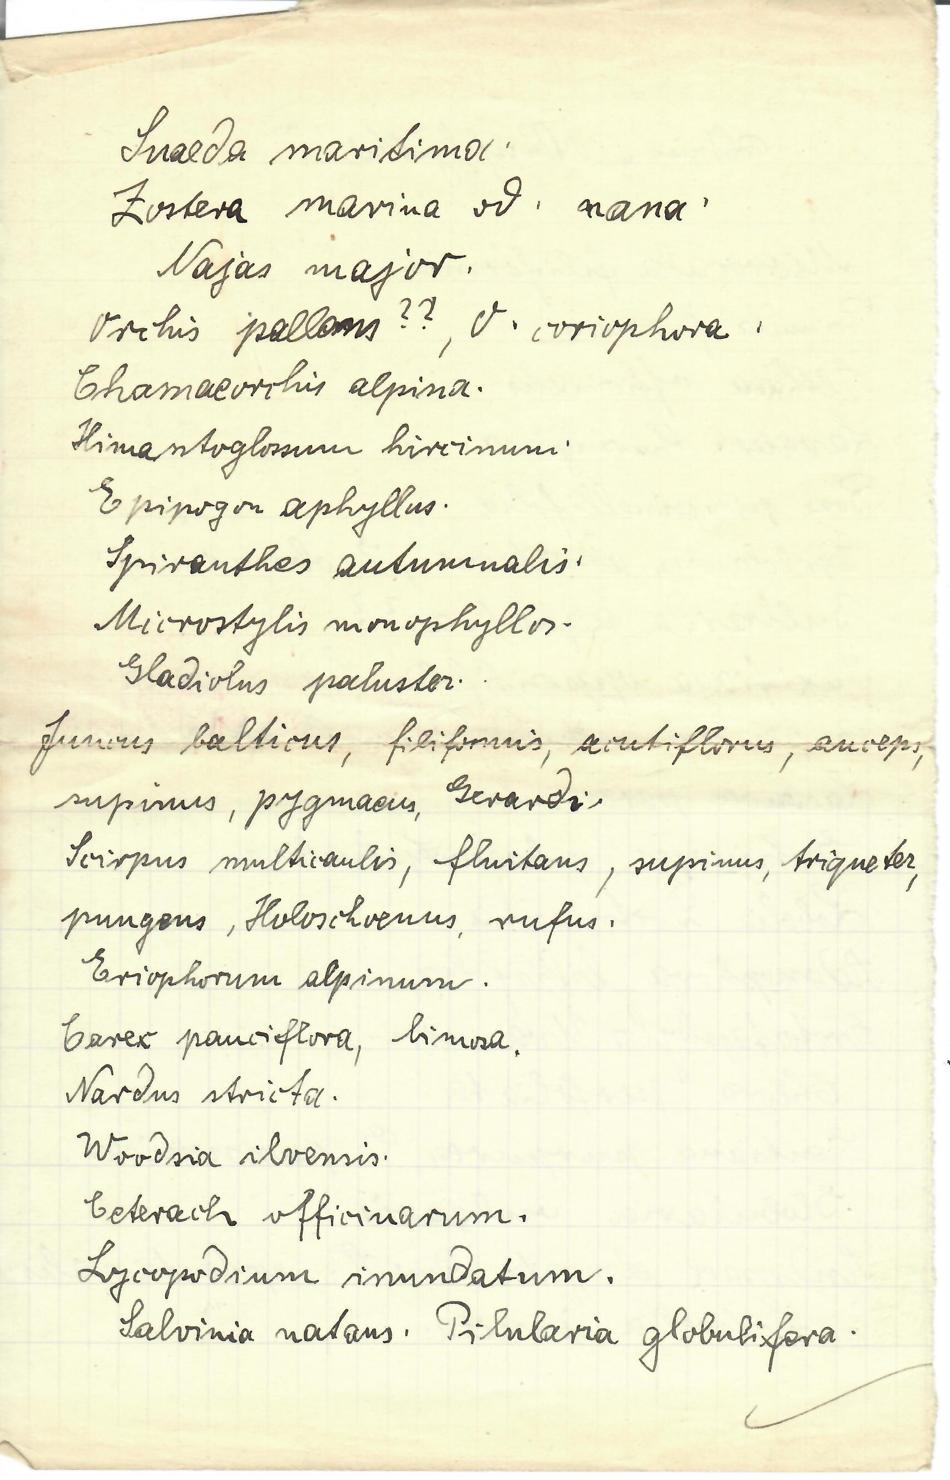 Suaeda maritima.
Zostera marina od. nana.
Najas major.
Orchis pallens??, O. coriophora.
Chamaeorchis alpina.
Himantoglossum hircinum.
Epipogon aphyllus.
Spiranthes autumnalis.
Microstylis monophyllos.
Gladiolus paluster.
Juncus balticus, filiformis, acutiflorus, anceps,
supinus, pygmaeus, Gerardi.
Scirpus multicaulis, fluitans, supinus, triqueter,
pungens, Holoschoenus, rufus.
Eriophorum alpinum.
Carex pauciflora, limosa.
Nardus stricta.
Woodsia ilvensis.
Ceterach officinarum.
Lycopodium inundatum.
Salvinia natans. Pilularia globulifera.